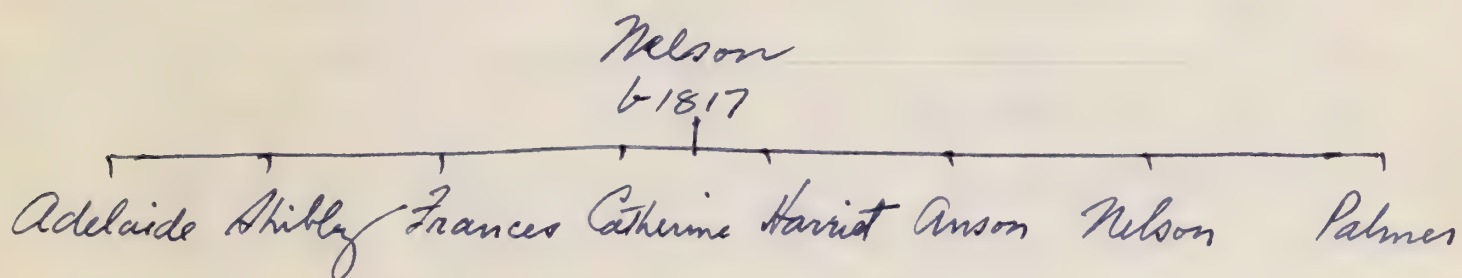 Nelson
b-1817
Adelaide Shibley Frances Catherine Harriet Anson Nelson Palmer